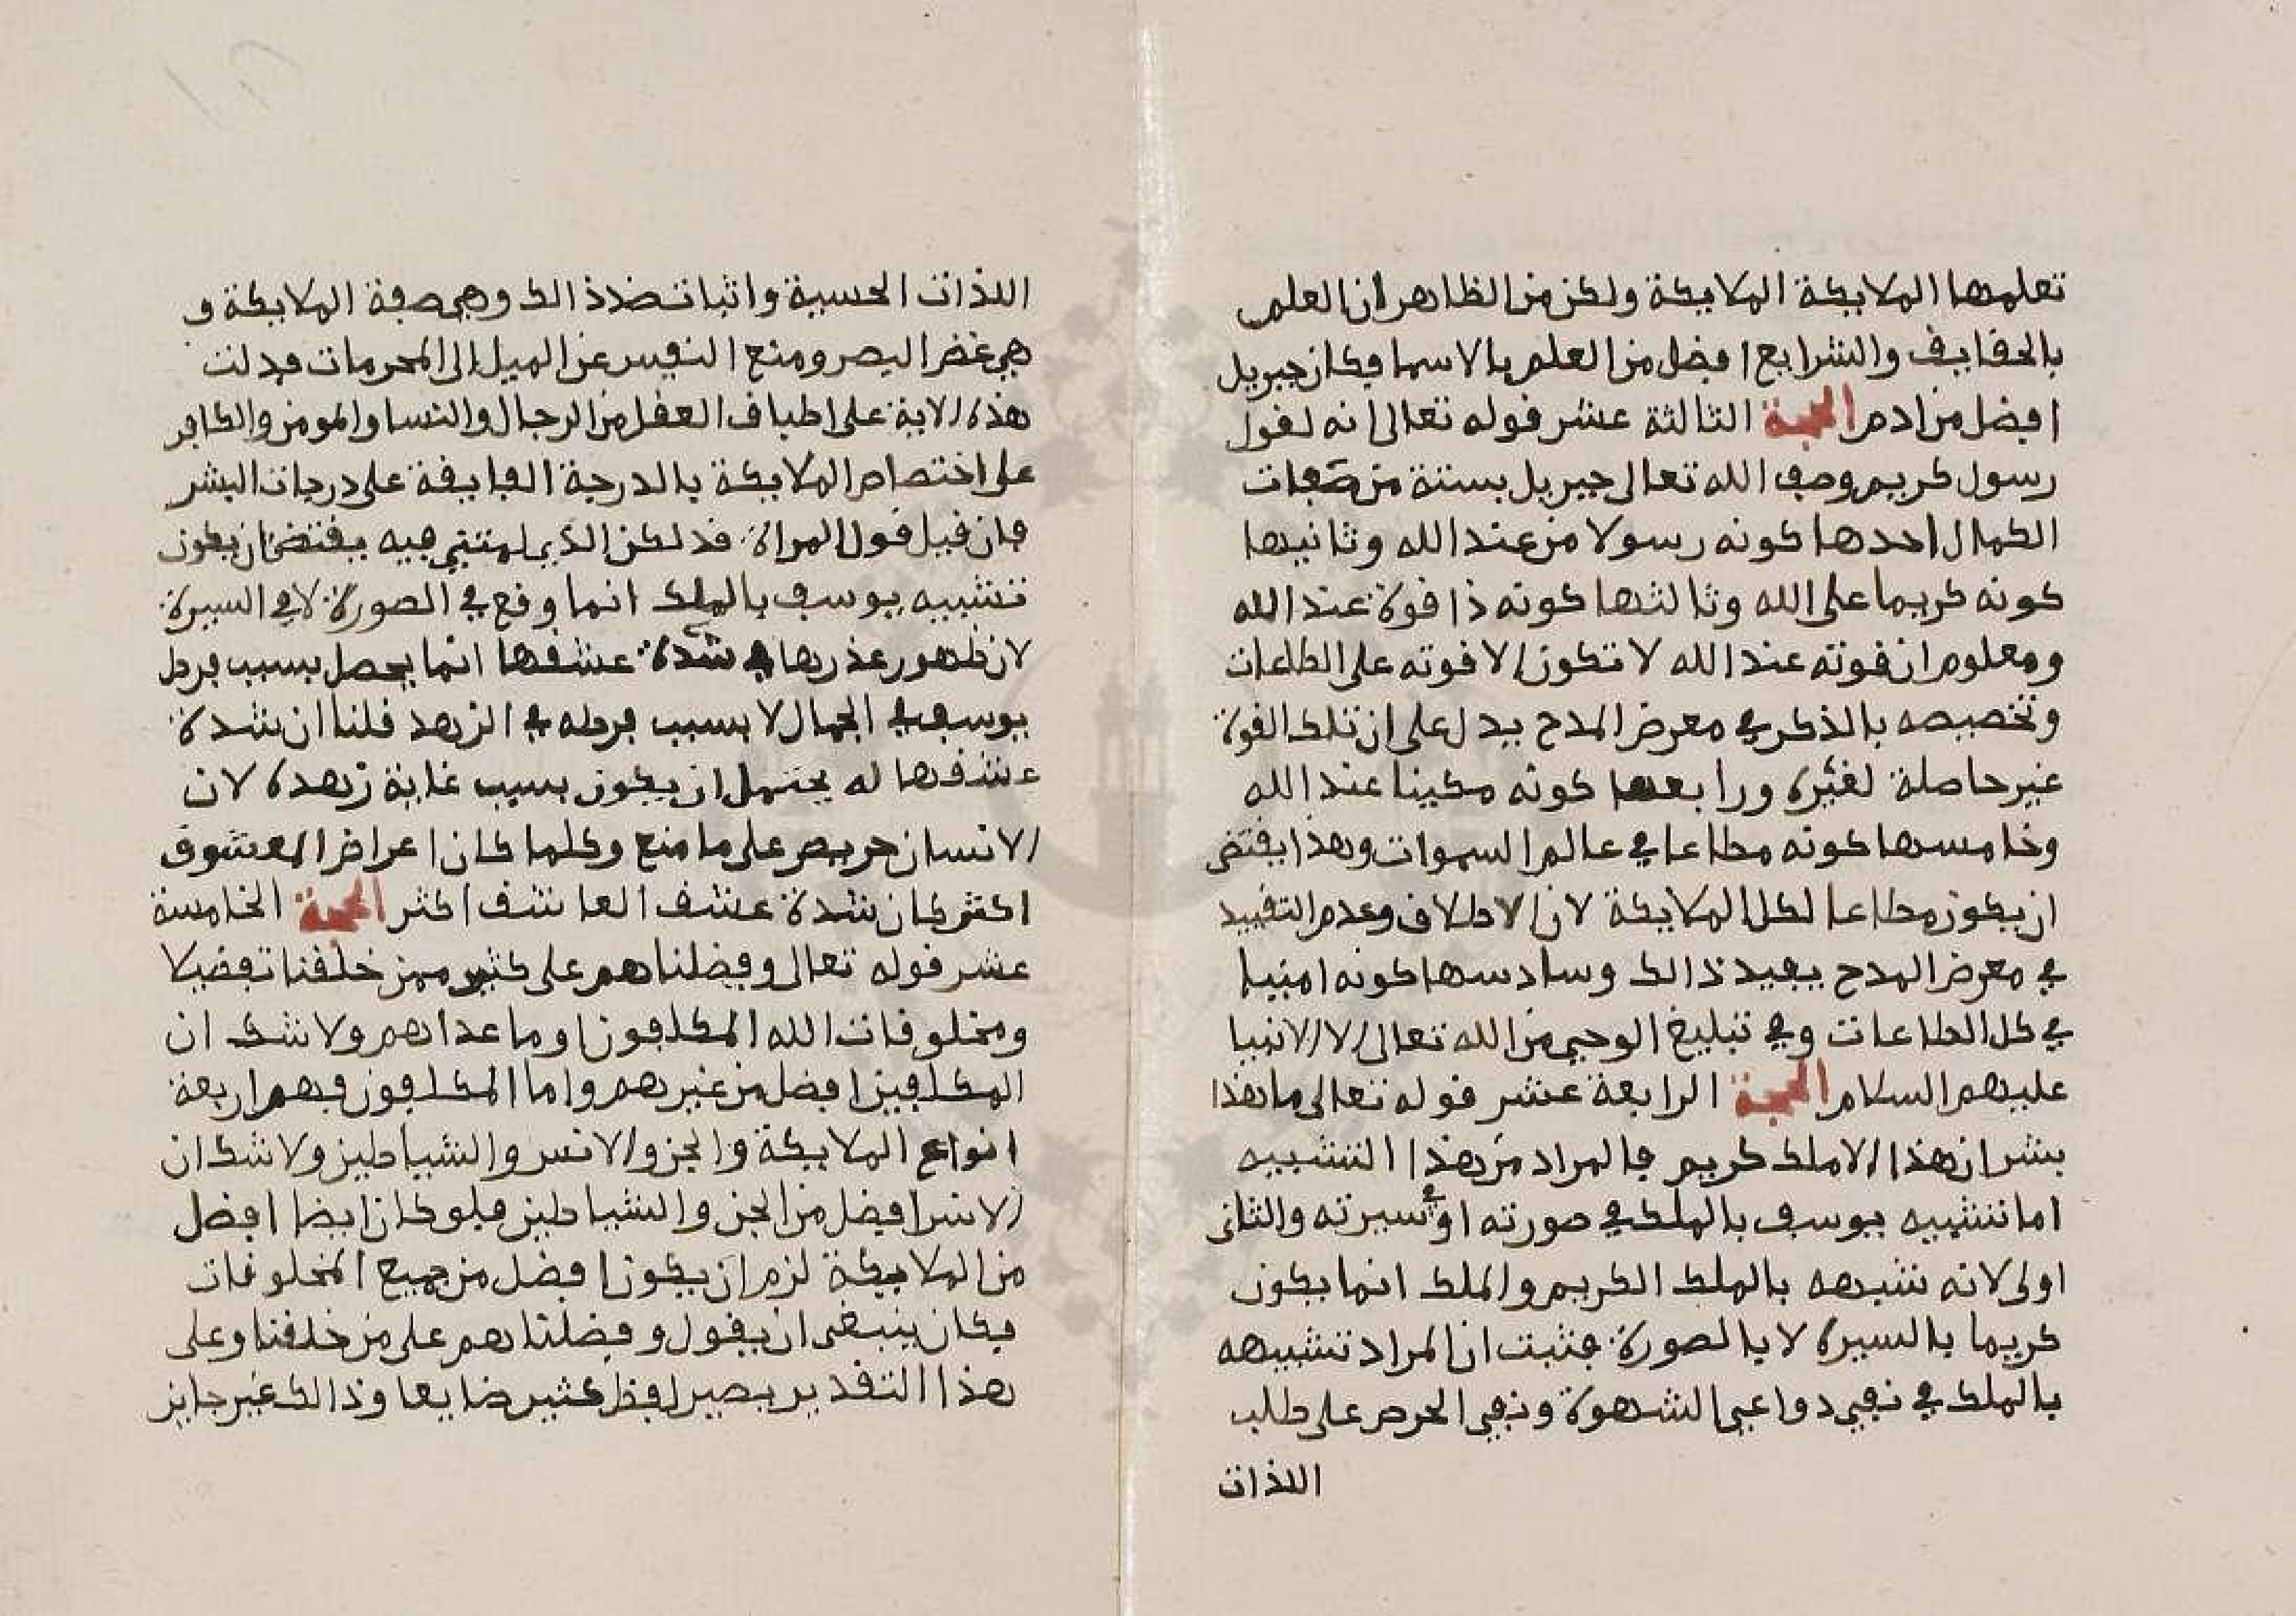 تعلمها الملايكة الملايكة ولكن من الظاهر ان العلم
بالحقايق والشرايع افضل من العلم بالاسما فكان جبريل
افضل من ادم الحجة الثالثة عشر قوله تعالى انه لقول
رسول كريم وصف الله تعالى جبريل بستة من صفات
الكمال احدها كونه رسولا من عند الله وثانيها
كونه كريما على الله وثالثها كونه ذا قوة عند الله
ومعلوم ان قوته عند الله لا تكون الا قوته على الطاعات
وتخصيصه بالذكر في معرض المدح يدل على ان تلك القوة
غير حاصلة لغيره ورابعها كونه مكينا عند الله
وخامسها كونه مطاعا في عالم السموات وهذا يقتضى
ان يكون مطاعا لكل الملايكة لان الاطلاق وعدم التقييد
في معرض المدح يفيد ذالك وسادسها كونه امينا
في كل الطاعات وفي تبليغ الوحي من الله تعالى الا الانبيا
عليهم السلام الحجة الرابعة عشر قوله تعالى ما هذا
بشر ان هذا الا ملك كريم فالمراد من هذا التشبيه
اما تشبيه يوسف بالملك في صورته او في سيرته والثانى
اولى لانه شبهه بالملك الكريم والملك انما يكون
كريما بالسيرة لا بالصورة فثبت ان المراد تشبيهه
بالملك في نفي دواعي الشهوة ونفي الحرص على طلب
اللذات
اللذات الحسية واثبات ضد ذالك وهي صفة الملايكة و
هي غض البصر ومنع النفس عن الميل الى المحرمات فدلت
هذه الاية على اطباق العقل من الرجال والنسا والمومن والكافر
على اختصاص الملايكة بالدرجة الفايقة على درجات البشر
فان قيل قول المراة فذلكن الذي لمتنني فيه يقتضى ان يكون
تشبيه يوسف بالملك انما وقع في الصورة لا في السيرة
لان ظهور عذرها في شدة عشقها انما يحصل بسبب فرط
يوسف في الجمال لا بسبب فرطه في الزهد قلنا ان شدة
عشقها له يحتمل ان يكون بسبب غاية زهده لان
الانسان حريص على ما منع وكلما كان اعراض المعشوق
اكثر كان شدة عشق العاشق اكثر الحجة الخامسة
عشر قوله تعالى وفضلناهم على كثير ممن خلقنا تفضيلا
ومخلوقات الله المكلفون وما عداهم ولا شك ان
المكلفين افضل من غيرهم واما المكلفون فهم اربعة
انواع الملايكة والجن والانس والشياطين ولا شك ان
الانس افضل من الجن والشياطين فلو كان ايضا افضل
من الملايكة لزم ان يكون افضل من جميع المخلوقات
فكان ينبغى ان يقول وفضلناهم على من خلقنا وعلى
هذا التقدير يصير لفظ كثير ضايعا وذالك غير جايز